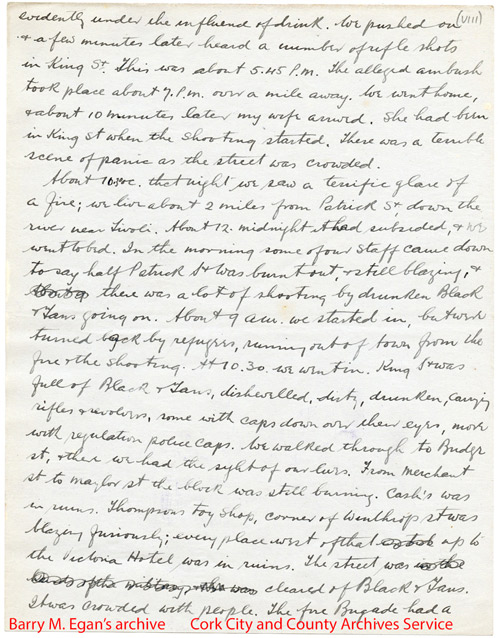 (VIII)
evidently under the influend of drink. We pushed on
& a few minutes later heard a number of rifle shots
in King St. This was about 5.45 P.m. The alleged ambush
took place about 7. P.m. over a mile away. We went home,
& about 10 minutes later my wife arrived. She had been
in King St when the shooting started. There was a terrible
scene of panic as the street was crowded.
About 10 o'c. that night we saw a terrific glare of
a fire; we live about 2 miles from Patrick St, down the
river near Tivoli. About 12. midnight it had subsided, & we
went to bed. In the morning some of our Staff came down
to say half Patrick St was burnt out, & still blazing, &
there was a lot of shooting by drunken Black
& Tans going on. About 9 a.m. we started in, but were
turned back by refugees, running out of town from the
fire & the shooting. At 10.30. we went in. King St was
full of Black & Tans, dishevelled, dirty, drunken, carrying
rifles & revolvers, some with caps down over their eyes, more
with regulation police caps. We walked through to Bridge
st, & then we had the sight of our lives. From Merchant
st to Maylor st the block was still burning. Cash's was
in ruins. Thompsons toy shop, corner of Winthrop st was
blazing furiously; every place west of that up to
the Victoria Hotel was in ruins. The street was
cleared of Black & Tans.
It was crowded with people. The fire Brigade had a
Barry M. Egan's archive Cork City and County Archives Service